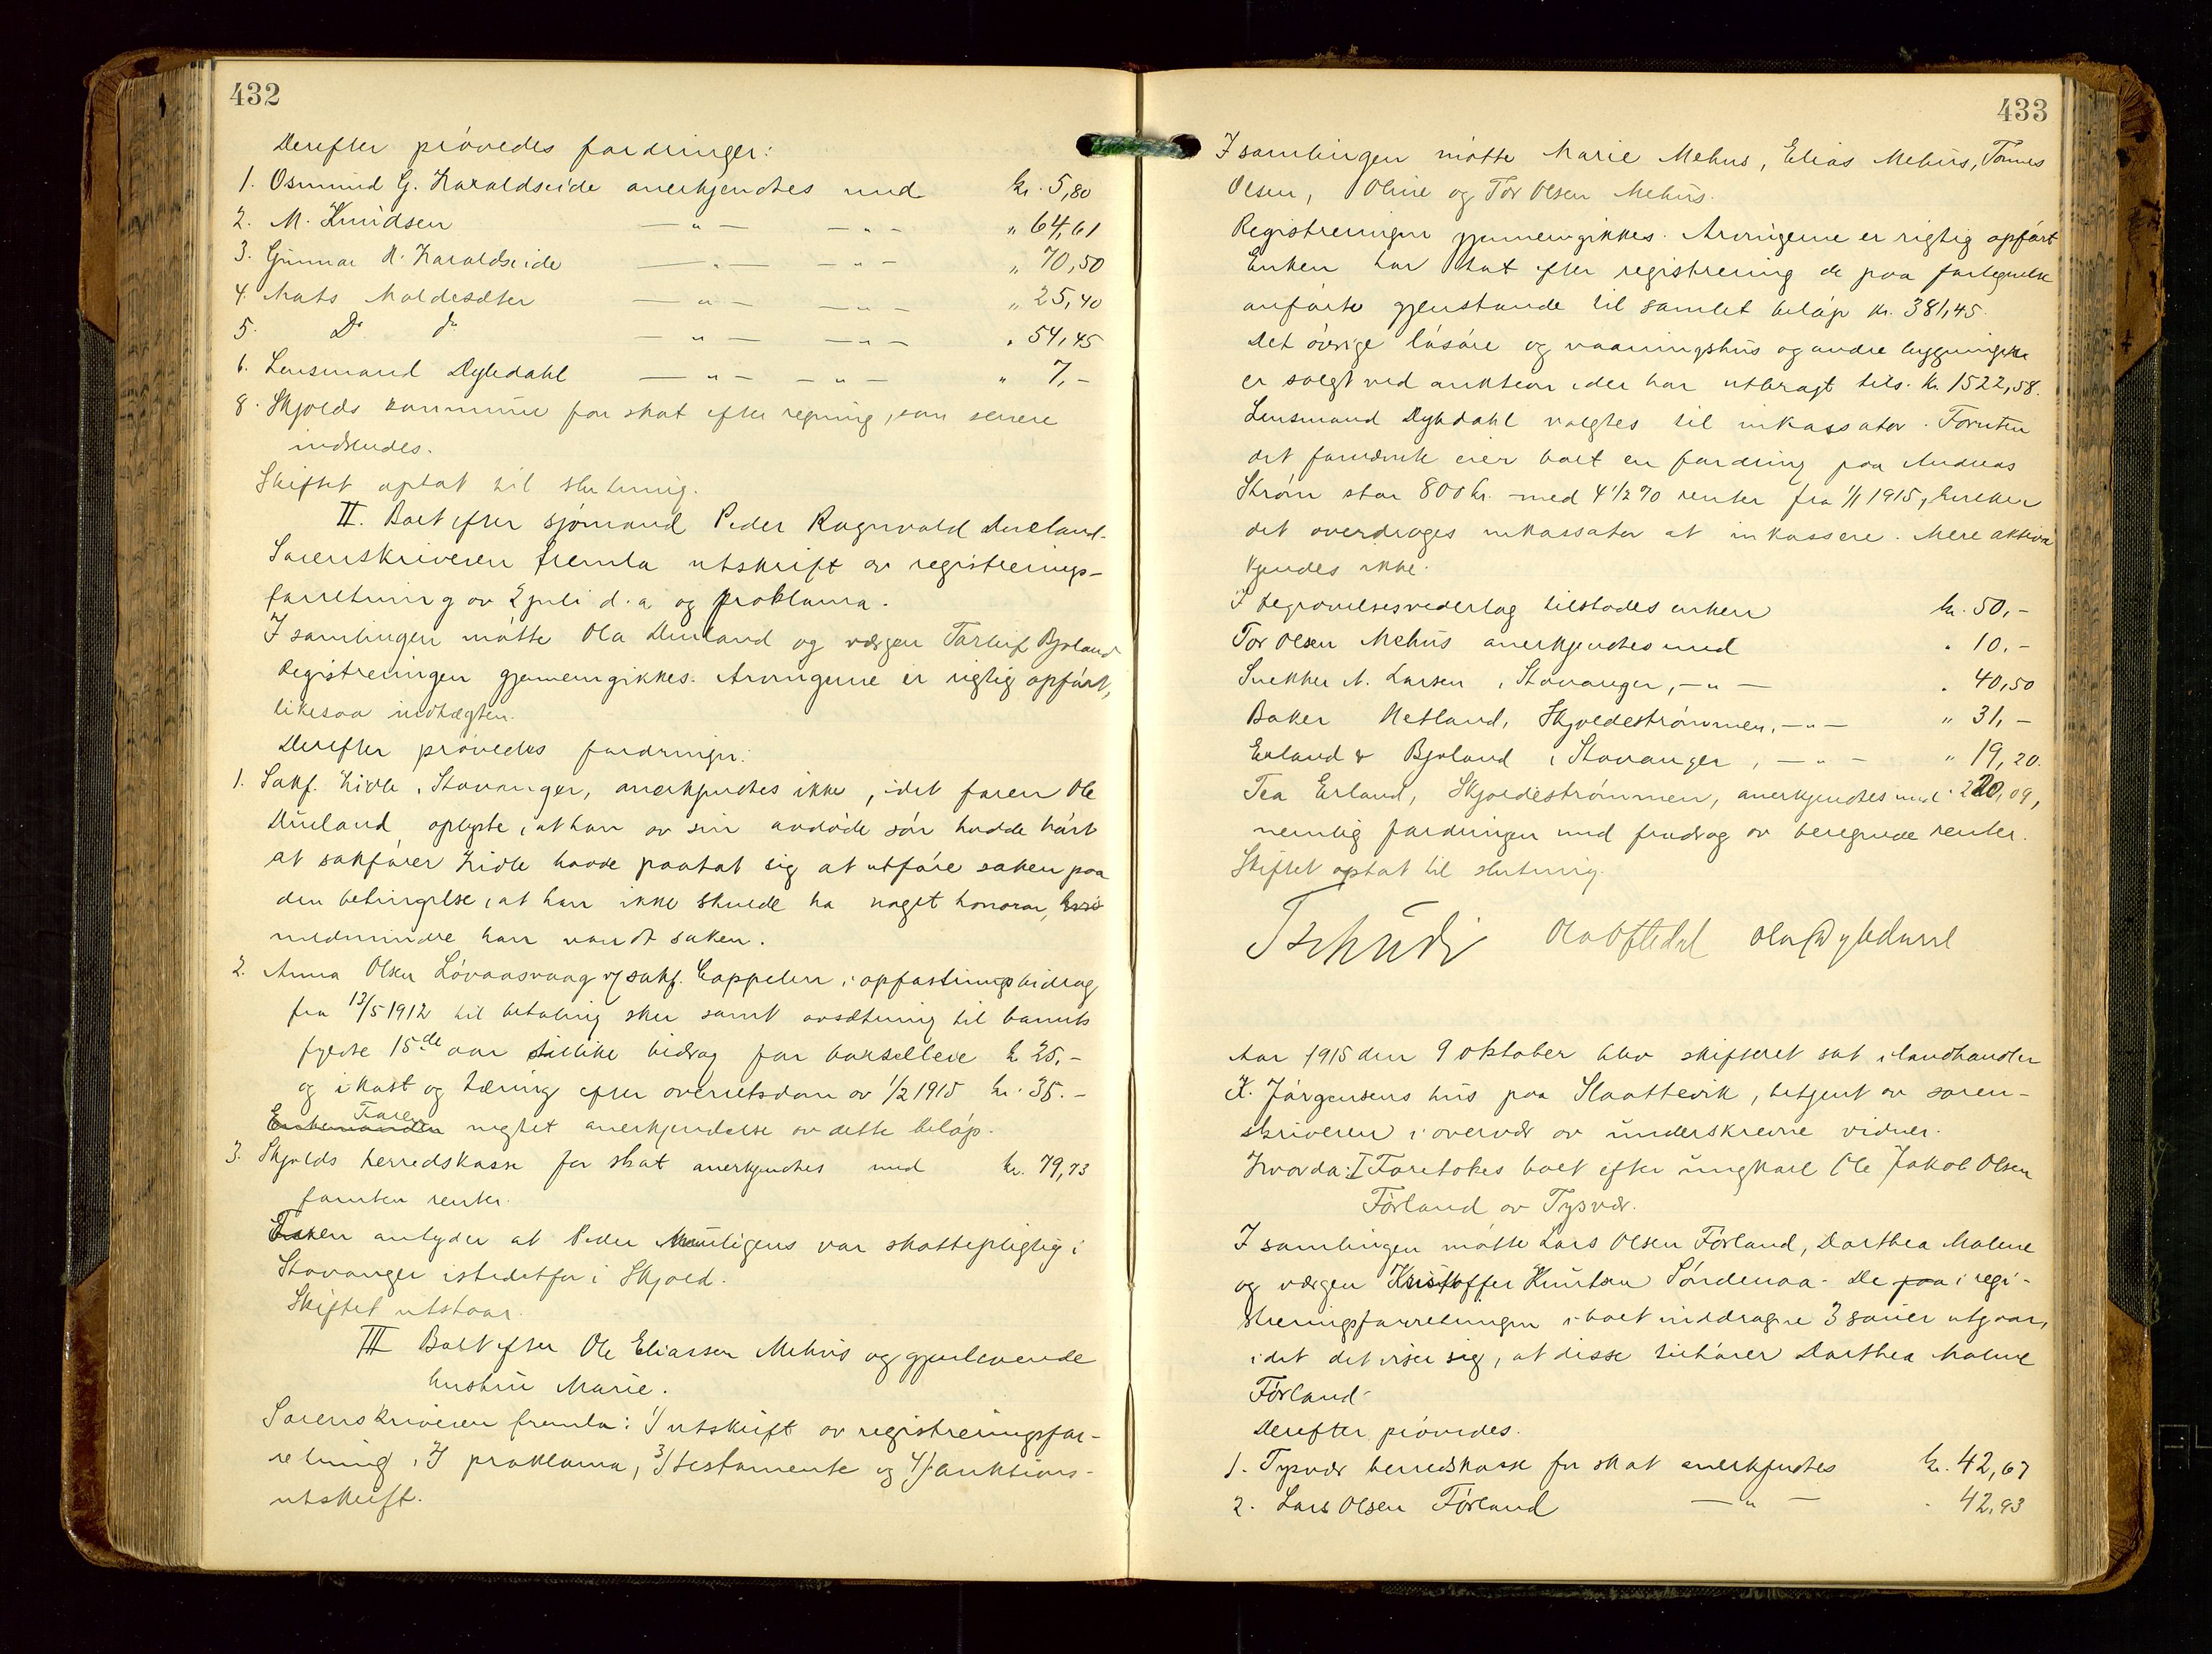 432
Derefter prøvedes fordringer:
1. Osmund G. Haraldseide anerkjendtes med kr. 5,80
2. M. Knudsen — „ — — „ — „ 64,61
3. Gunnar K. Haraldseide — „ — — „ — „ 70,50
4. Mats Moldesæter — „ — — „ — „ 25,40
5. Do do — „ — — „ — „ 54,45
6. Lensmand Dybdahl — „ — — „ — „ 7,-
8. Skjolds kommune for skat efter regning, som senere
indsendes.
Skiftet optat til slutning.
II. Boet efter sjømand Peder Ragnvald Dueland.
Sorenskriveren fremla utskrift av registrerings-
forretning av 2 juli d. a. og proklama.
I samlingen møtte Ola Dueland og værgen Torleif Bjoland
Registreringen gjennemgikkes. Arvingerne er rigtig opført,
likesaa indtægten.
Derefter prøvedes fordringer:
1. Sakf. Hidle, Stavanger, anerkjendtes ikke, idet faren Ole
Dueland oplyste, at han av sin avdøde søn hadde hørt
at sakfører Hidle havde paatat sig at utføre saken paa
den betingelse, at han ikke skulde ha noget honorar, hvis
medmindre han vandt saken.
2. Anna Olsen Løvaasvaag v/ sakf. Cappelen, i opfostringsbidrag
fra 13/5 1912 til betaling sker samt avsætning til barnets
fyldte 15de aar tillike bidrag for barselleie kr 25,-
og i kost og tæring efter overretsdom av 1/2 1915 kr. 35.-
Enkemanden Faren negtet anerkjendelse av dette beløp.
3. Skjolds herredskasse for skat anerkjendtes med kr. 79,73
foruten renter.
Faren antyder at Peder muligens var skattepligtig i
Stavanger istedetfor i Skjold.
Skiftet utstaar.
III Boet efter Ole Eliassen Mehus og gjenlevende
hustru Marie.
Sorenskriveren fremla: 1/ utskrift av registreringsfor-
retning, 2/ proklama, 3/ testamente og 4/ auktions-
utskrift.
433
I samlingen møtte Marie Mehus, Elias Mehus, Tønnes
Olsen, Oline og Tor Olsen Mehus.
Registreringen gjennemgikkes. Arvingerne er rigtig opført
Enken har tat efter registrering de paa fortegnelse
anførte gjenstande til samlet beløp kr. 381,45.
Det øvrige løsøre og vaaningshus og andre bygninger
er solgt ved auktion, der har utbragt tils. kr. 1522,58.
Lensmand Dybdahl valgtes til inkassator. Foruten
det fornævnte eier boet en fordring paa Andreas
Strøm stor 800 kr. med 4 1/2 % renter fra 1/1 1915, hvilken
det overdrages inkassator at inkassere. Mere aktiva
kjendes ikke.
I begravelsesvederlag tilstodes enken kr. 50,-
Tor Olsen Mehus anerkjendtes med „ 10.-
Snekker N. Larsen, Stavanger, — „ — „ 40,50
Baker Netland, Skjoldestrømmen, — „ — „ 31,-
Erland & Bjoland i Stavanger, — „ — „ 19,20.
Tea Erland, Skjoldestrømmen, anerkjendtes med „ 220,09,
nemlig fordringen med fradrag av beregnede renter.
Skiftet optat til slutning.
Tschudi Ola Oftedal Olaf Dybdahl
Aar 1915 den 9 oktober blev skifteret sat i landhandler
K. Jørgensens hus paa Slaattevik, betjent av soren-
skriveren i overvær av underskrevne vidner.
Hvorda: I Foretokes boet efter ungkarl Ole Jakob Olsen
Førland av Tysvær.
I samlingen møtte Lars Olsen Førland, Dorthea Malene
og værgen Kristoffer Knutsen Søndenaa. De paa i regi-
streringsforretningen i boet inddragne 3 sauer utgaar,
idet det viser sig, at disse tilhører Dorthea Malene
Førland.
Derefter prøvedes.
1. Tysvær herredskasse for skat anerkjendtes kr. 42,67
2. Lars Olsen Førland — „ — „ 42,93